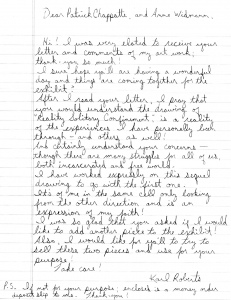 Dear Patrick Chappatte, and Anne Widmann,
Hi! I was very elated to receive your
letter and comments of my art work,
thank-you so much!
I sure hope ya'll are having a wonderful
day and things are coming together for the
exhibit!
After I read your letter, I pray that
you would understand the drawing of
"Reality Solitary Confinement" is a reality
of the experiences I have personally been
through - and others, as well!
And certainly understand your concerns -
though there are many struggles for all of us,
both incarcerated and free world.
I have worked expressly on this sequel
drawing to go with the first one.
It's of me in the same cell only looking
from the other direction and is an
expression of my faith!
I was so glad that you asked if I would
like to add another piece to the exhibit!
Also, I would like for ya'll to try to
sell these two pieces and use for your
purpose!
Take care!
Karl Roberts
P.S. If not for your purpose, enclosed is a money order
deposit slip to me. Thank you!